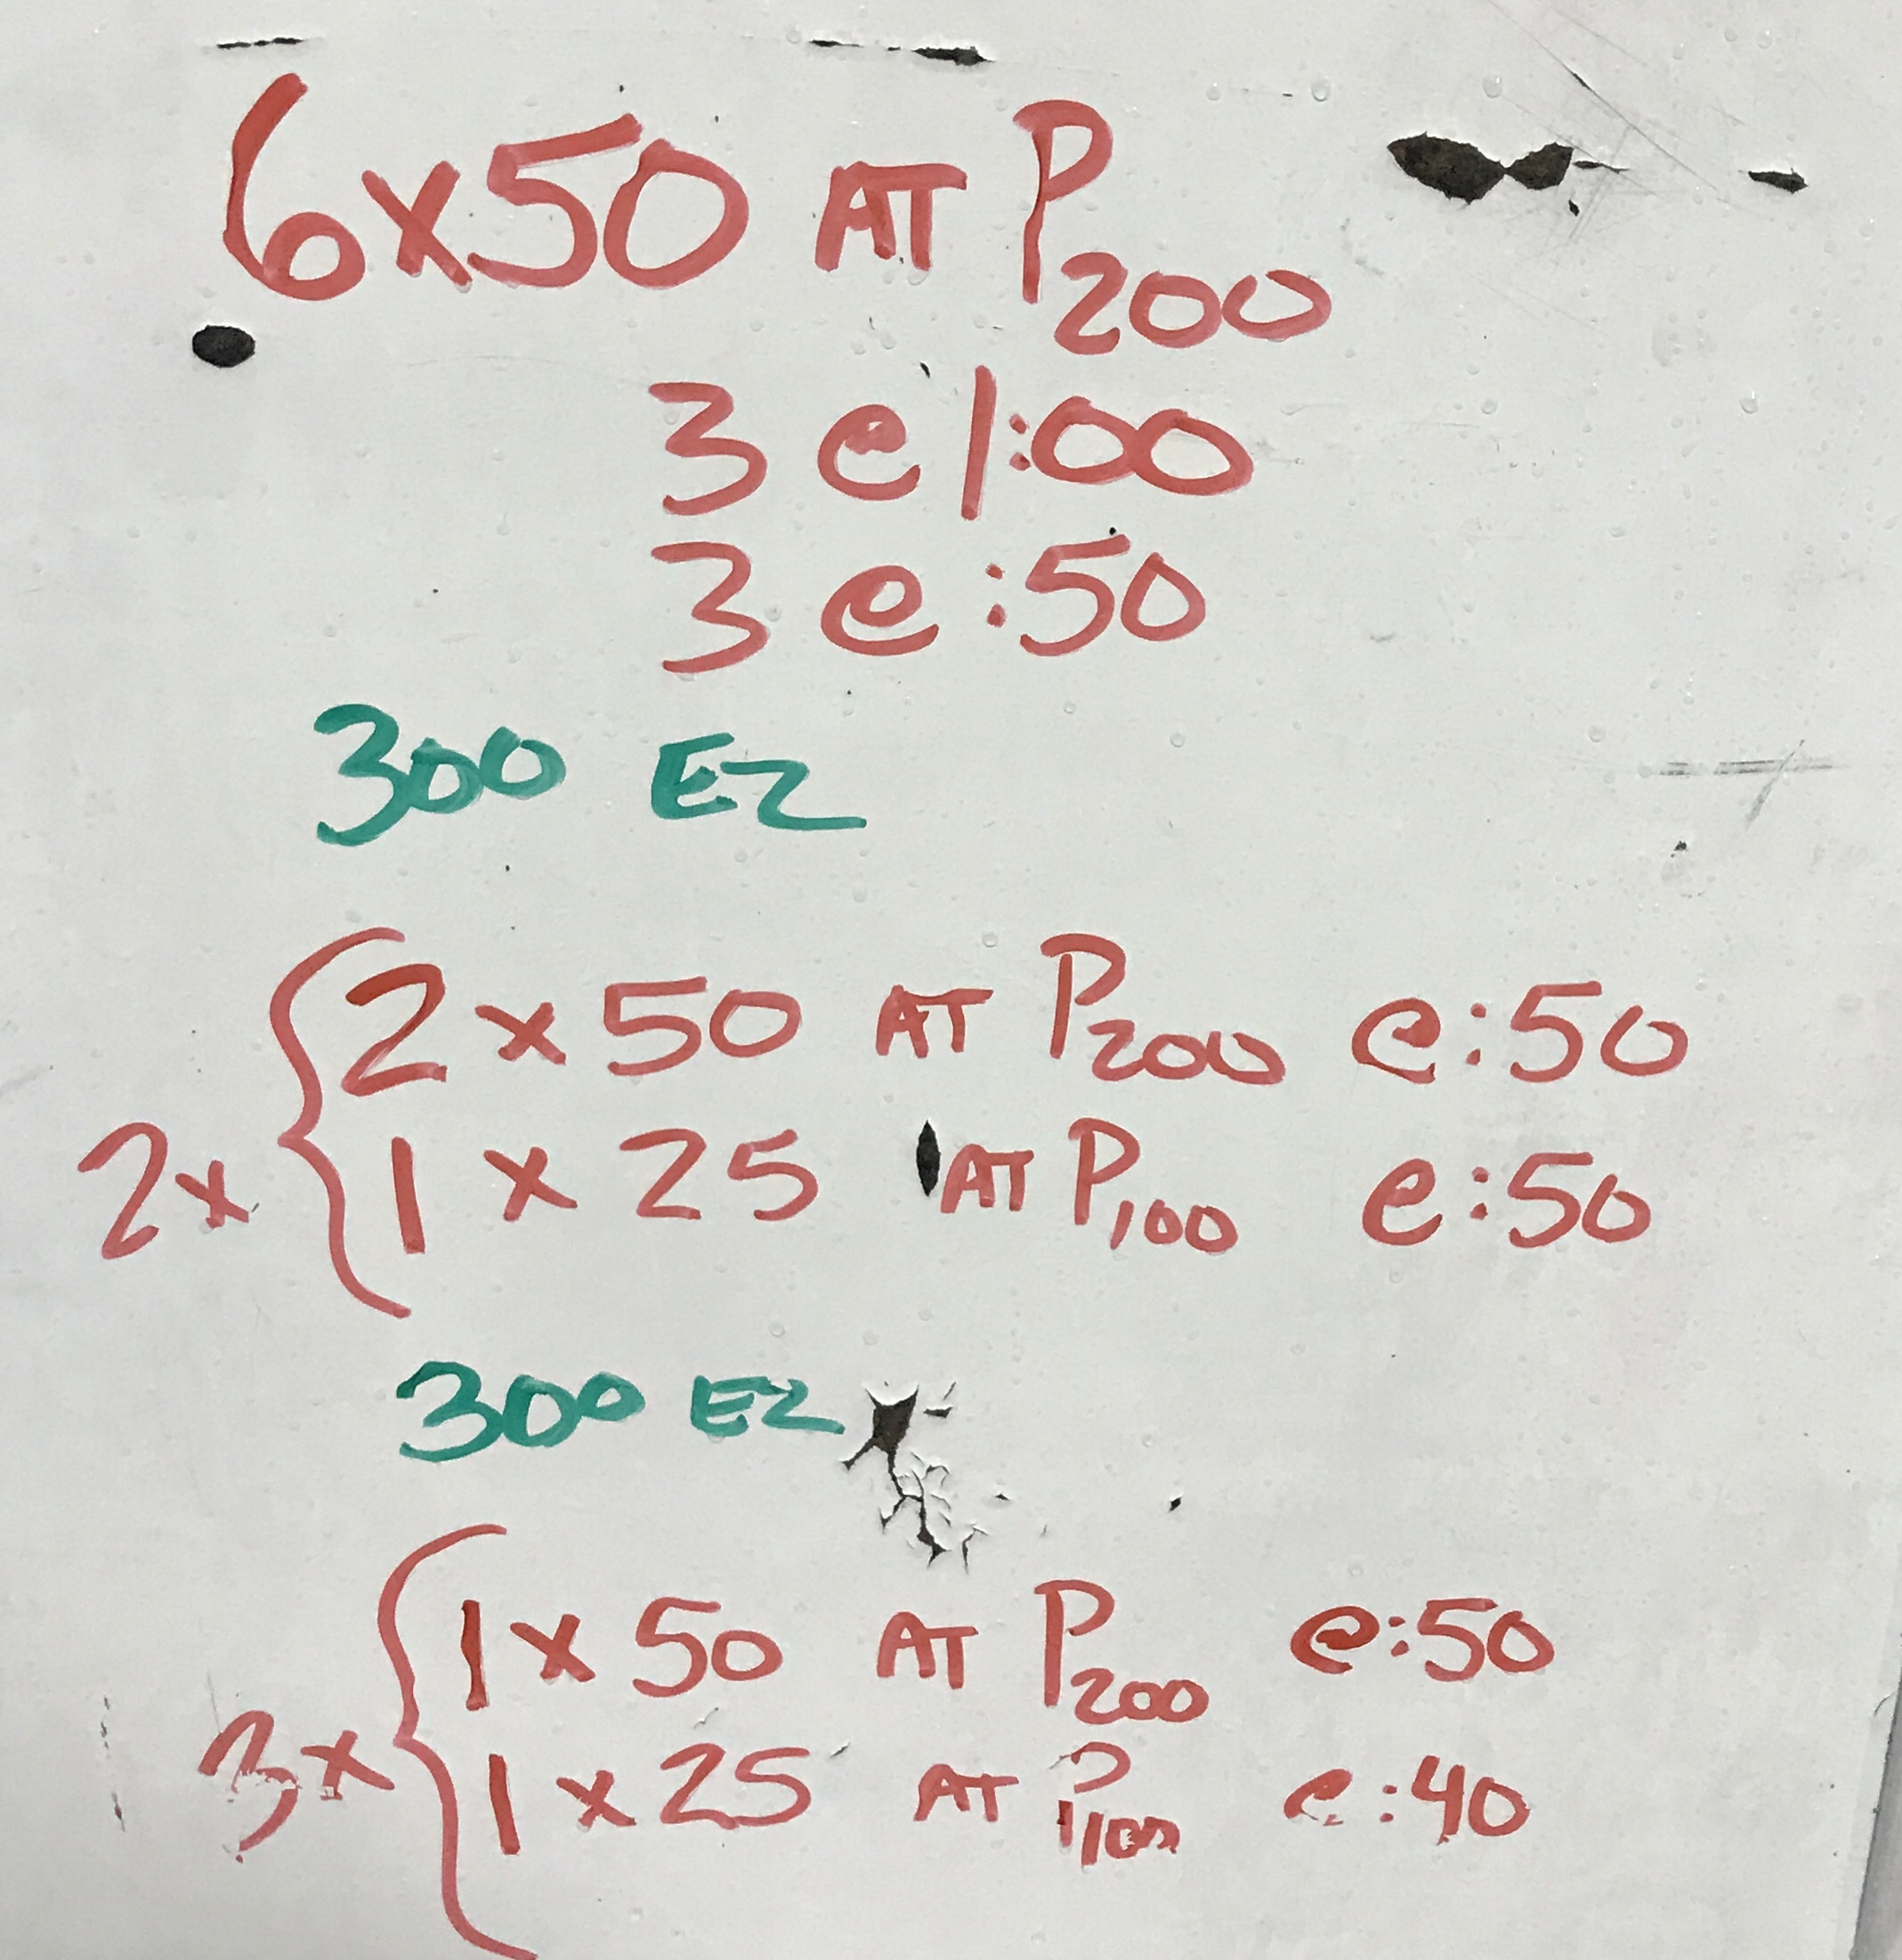 6x50 AT P200
3 @ 1:00
3 @ :50
300 EZ
2x { 2 x 50 AT P200 @ :50
1 x 25 AT P100 @ :50
300 EZ
3x { 1 x 50 AT P200 @ :50
1 x 25 AT P100 @ :40